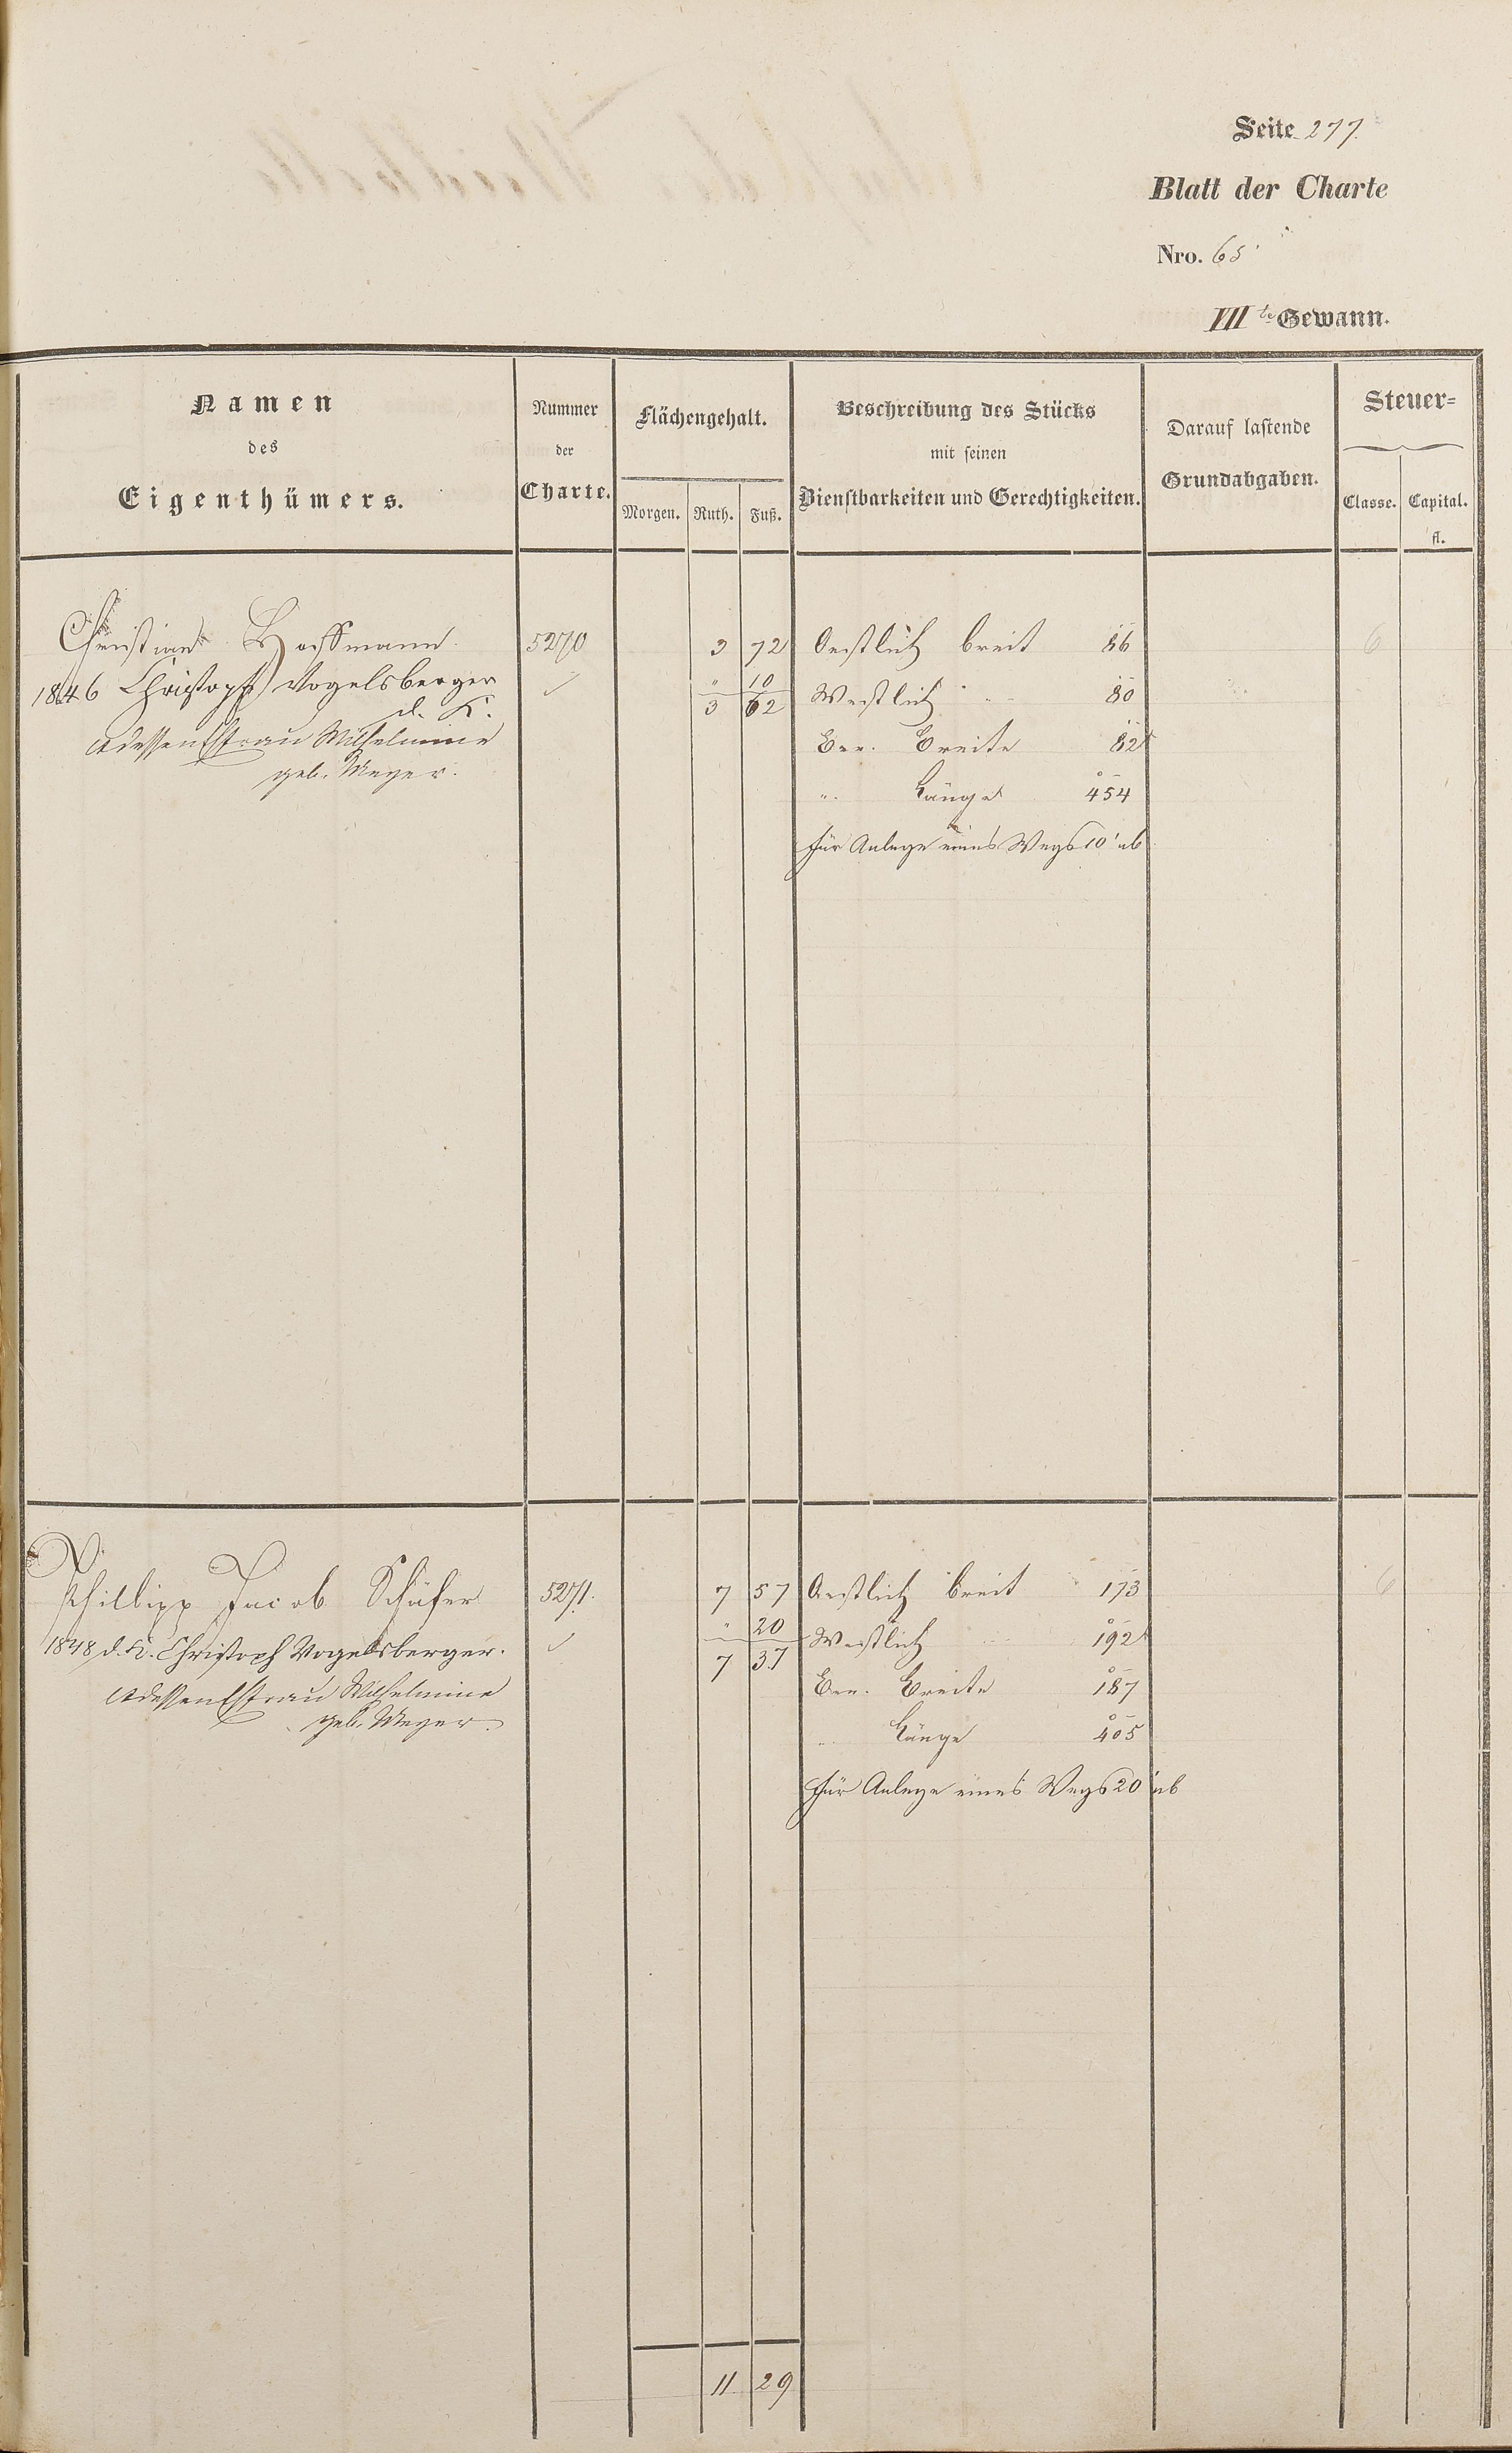 Seite 277.
Blatt der Charte
Nro. 65
VII te Gewann.
Namen
des
Eigenthümers.
Nummer
der
Charte.
Flächengehalt.
Morgen. Ruth. Fuß.
Beschreibung des Stücks
mit seinen
Dienstbarkeiten und Gerechtigkeiten.
Darauf lastende
Grundabgaben.
Steuer=
Classe. Capital.
fl.
Christian Hoffmann. 5270 3 72 Oestlich breit 86 6
1846 Christoph Vogelsberger ✓ " 10 Westlich " 80
d. K. 3 62
Ehefrau Wilhelmine Ber. Breite 82
geb. Meyer.
" Länge 454
Für Anlage eines Wegs 10' ab
Philipp Jacob Schäfer 5271. 7 57 Oestlich breit 173 6
1848 d. K. Christoph Vogelsberger. ✓ " 20 Westlich " 192
7 37
Ehefrau Wilhelmine Ber. Breite 187
geb. Meyer.
" Länge 405
Für Anlage eines Wegs 20' ab
11 29